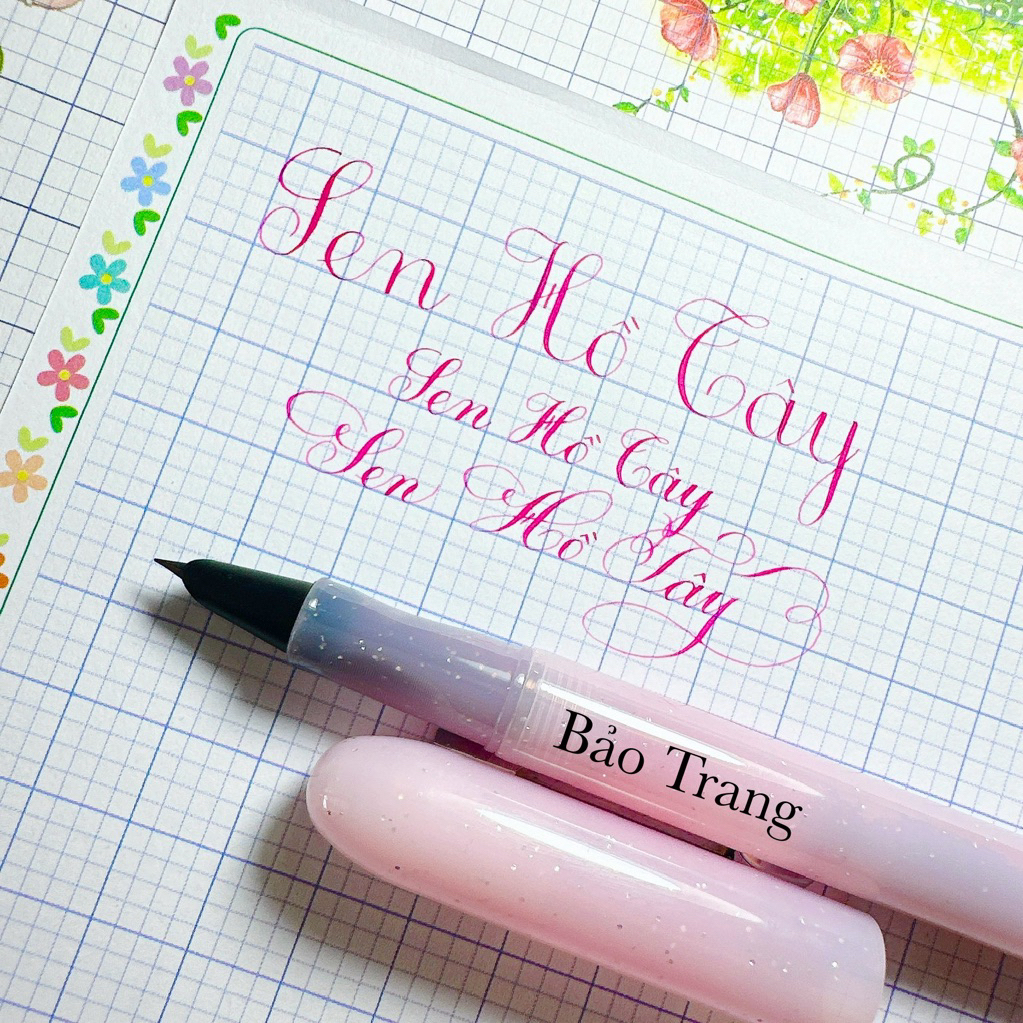 Sen Hồ Tây
Sen Hồ Tây
Sen Hồ Tây
Bảo Trang